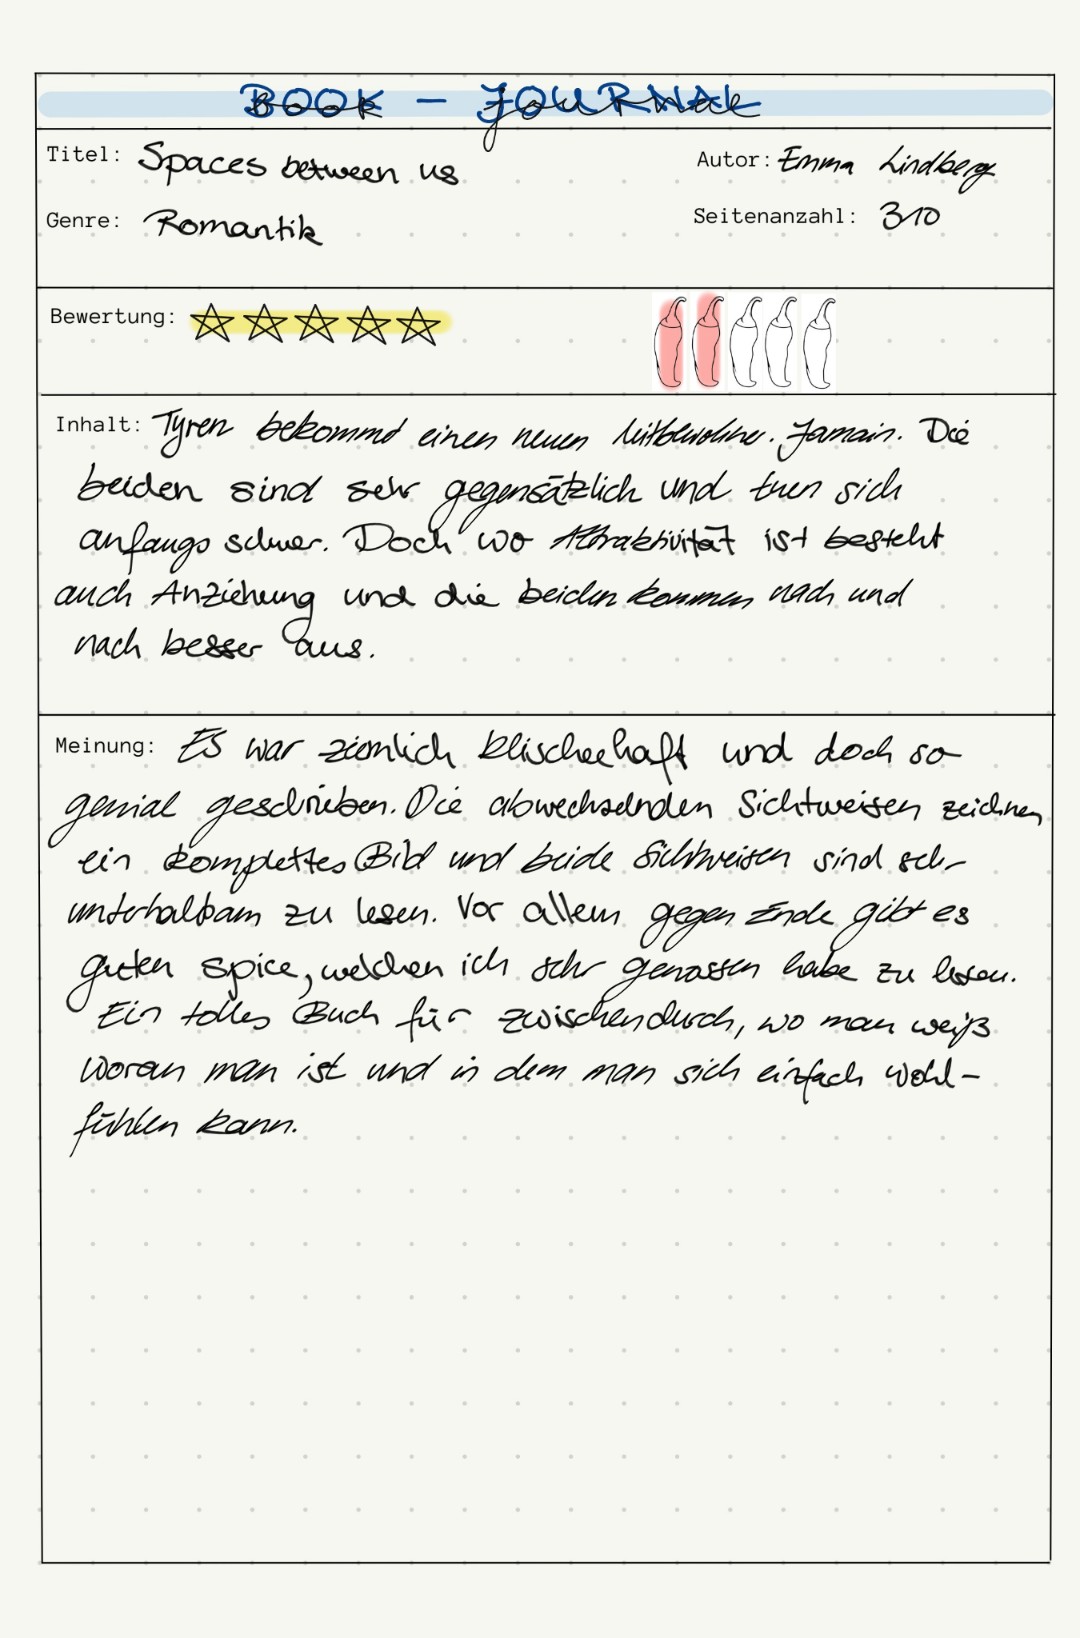 BOOK - JOURNAL
Titel: Spaces between us
Autor: Emma Lindberg
Genre: Romantik
Seitenanzahl: 310
Bewertung:
Inhalt: Tyren bekommt einen neuen Mitbewohner. Jamain. Die
beiden sind sehr gegensätzlich und tuen sich
anfangs schwer. Doch wo Attraktivität ist besteht
auch Anziehung und die beiden kommen nach und
nach besser aus.
Meinung: Es war ziemlich klischeehaft und doch so
genial geschrieben. Die abwechselnden Sichtweisen zeichnen
ein komplettes Bild und beide Sichtweisen sind sehr
unterhaltsam zu lesen. Vor allem gegen Ende gibt es
guten spice, welchen ich sehr genossen habe zu lesen.
Ein tolles Buch für zwischendurch, wo man weiß
woran man ist und in dem man sich einfach wohl-
fühlen kann.